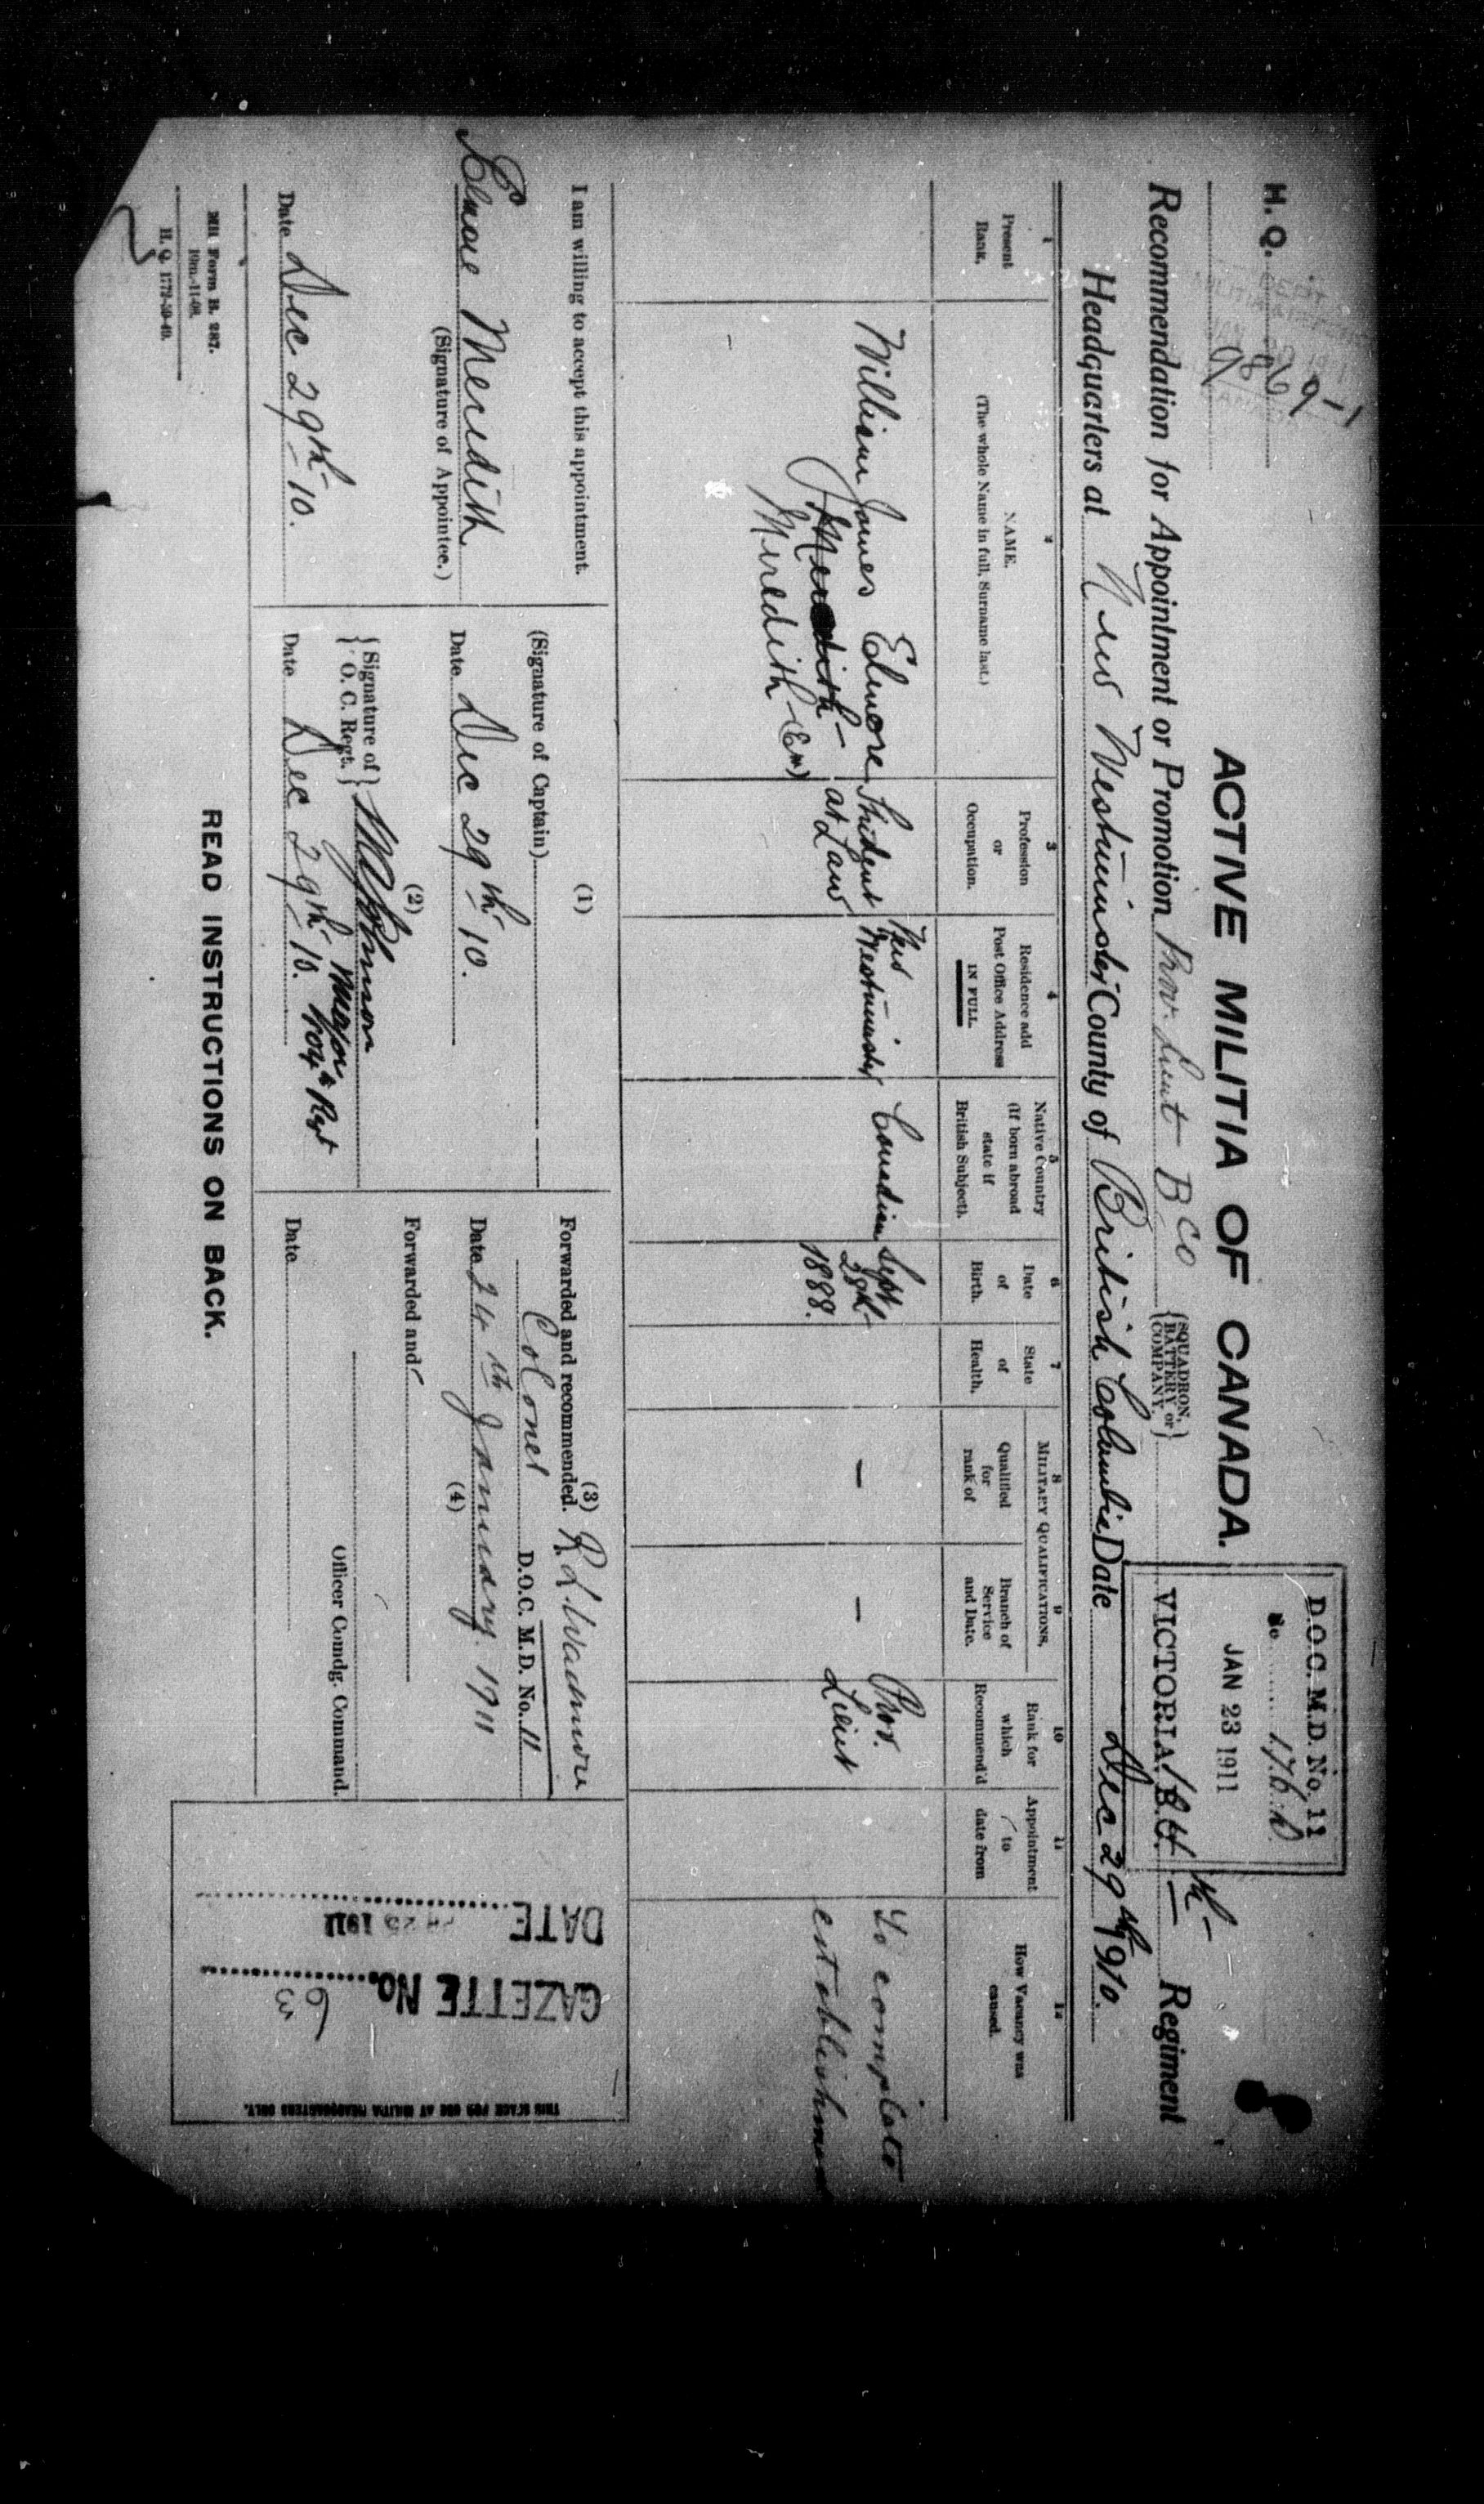 H. Q.
9869-1
DEPT
MILITIA & DEFENCE
CANADA
D.O.C. M.D. No. 11
No. 176.D
JAN 23 1911
VICTORIA, B.C.
ACTIVE MILITIA OF CANADA.
Recommendation for Appointment or Promotion Prov. Lieut B Co {SQUADRON, BATTERY or COMPANY.} 104th Regiment
Headquarters at New Westminster County of British Columbia Date Dec 29th 1910.
1
Present
Rank.
2
NAME.
(The whole Name in full, Surname last.)
3
Profession
or
Occupation.
4
Residence add
Post Office Address
IN FULL.
5
Native Country
(If born abroad
state if
British Subject).
6
Date
of
Birth.
7
State
of
Health.
MILITARY QUALIFICATIONS.
8
Qualified
for
rank of
9
Branch of
Service
and Date.
10
Rank for
which
Recommend'd
11
Appointment
to
date from
12
How Vacancy was
caused.
William James Elmore
Meredith-
Meredith-(Em)
Student
at Law
New
Westminster
Canadian
Sept
28th-
1888.
-
-
Prov.
Lieut
To complete
establishment
I am willing to accept this appointment.
Elmore Meredith
(Signature of Appointee.)
Date Dec 29th 10.
(1)
(Signature of Captain)
Date Dec 29th 10.
(2)
{Signature of O. C. Regt.}
Major
104th Regt
Date Dec 29th 10.
(3)
Forwarded and recommended. R.L. Wadmore
Colonel D.O.C. M.D. No. 11
Date 24th January. 1911
(4)
Forwarded and
Officer Comdg. Command.
Date
GAZETTE No.
DATE
25 1911
THIS SPACE FOR USE AT MILITIA HEADQUARTERS ONLY.
Mil Form B. 287.
10m.-11-08.
H. Q. 1772-39-49.
READ INSTRUCTIONS ON BACK.